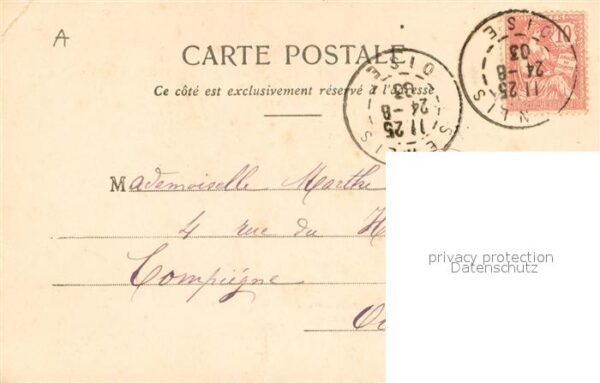 A
CARTE POSTALE
Ce côté est exclusivement réservé à l'adresse
10
OISE
11 25
24 -8
03
SENLIS
OISE
11 25
24 -8
03
NLIS
Mademoiselle Marthe
4 rue du H
Compiègne
privacy protection
Datenschutz